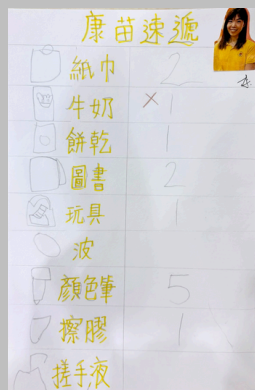 康苗速遞
紙巾 2
牛奶 × 1
餅乾 1
圖書 2
玩具 1
波
顏色筆 5
擦膠 1
搓手液